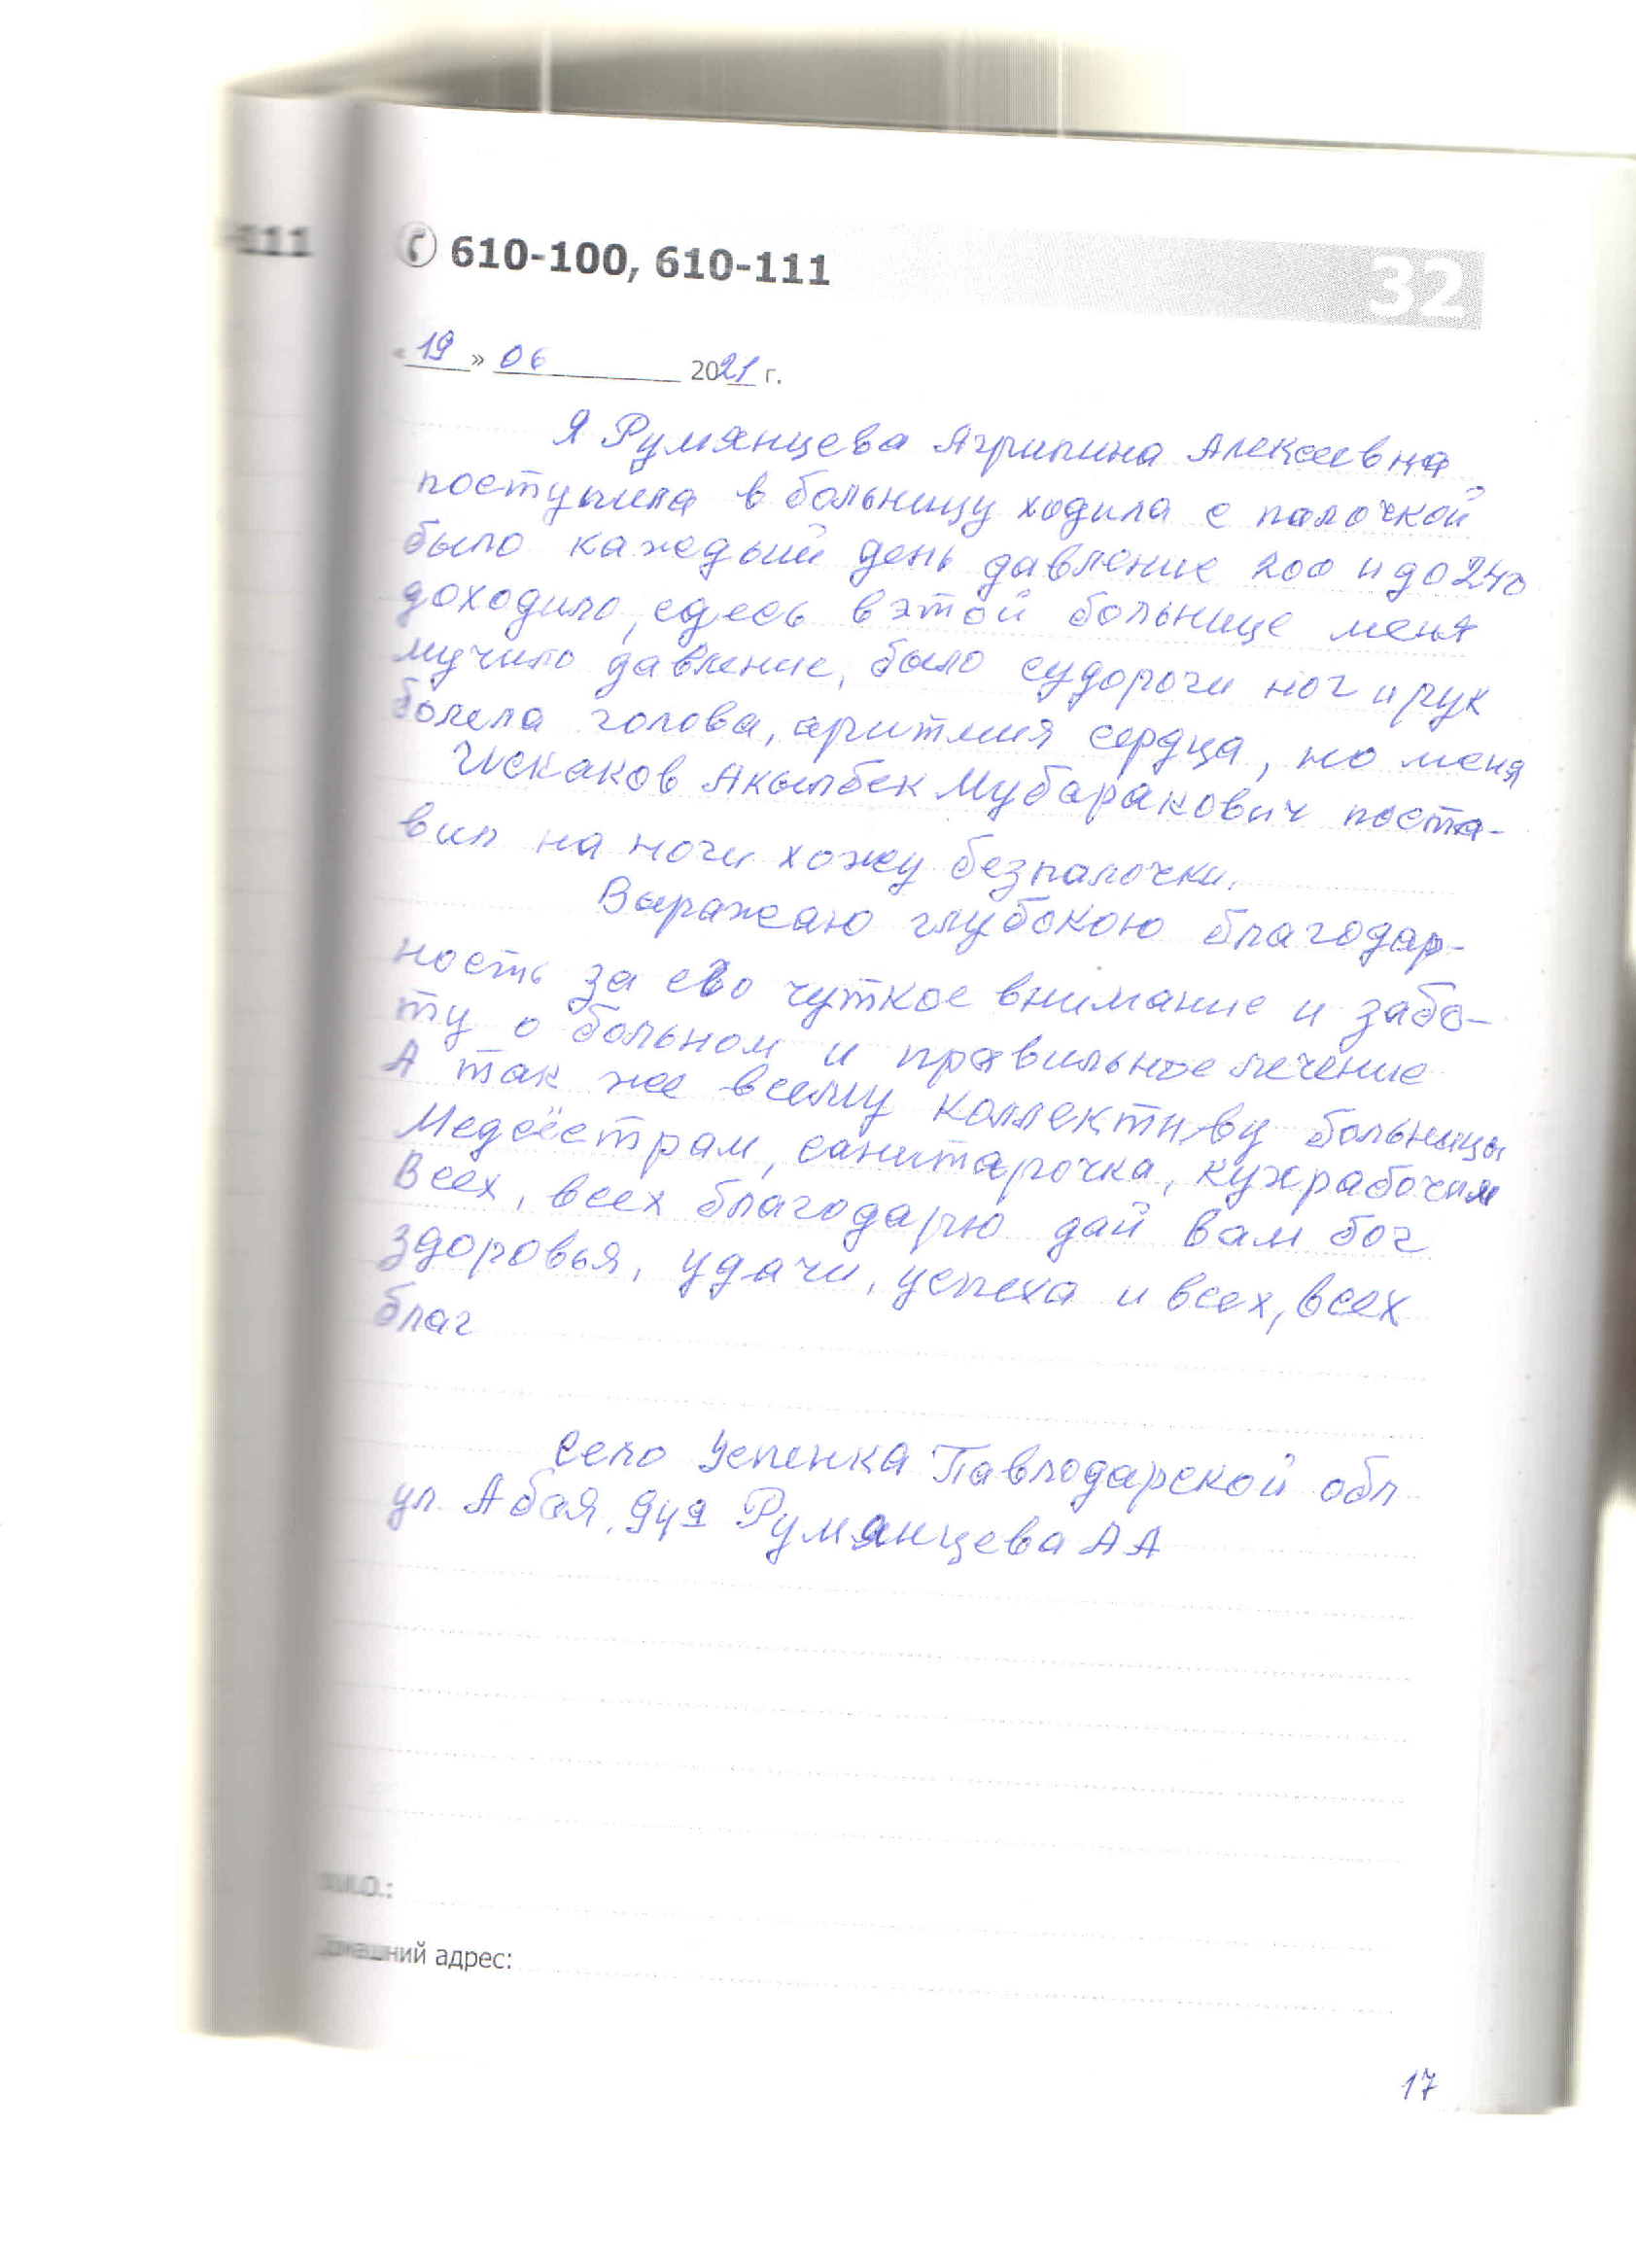 -111
610-100, 610-111
32
« 19 » 06 2021 г.
Я Румянцева Агрипина Алексеевна
поступила в больницу ходила с палочкой
было каждый день давление 200 и до 240
доходило, сдесь в этой больнице меня
мучило давление, было судороги ног и рук
болела голова, аритмия сердца, но меня
Искаков Акылбек Мубаракович поста-
вил на ноги хожу безпалочки.
Выражаю глубокою благодар-
ность за его чуткое внимание и забо-
ту о больном и правильное лечение
А так же всему коллективу больницы
Медсёстрам, санитарочка, кухрабочим
Всех, всех благодарю дай вам бог
здоровья, удачи, успеха и всех, всех
благ
село Успенка Павлодарской обл
ул. Абая, Румянцева АА
Ф.И.О.:
Домашний адрес:
17